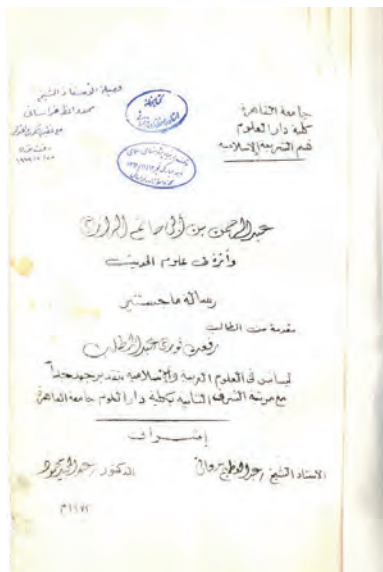 جامعة القاهرة
كلية دار العلوم
قسم الشريعة الإسلامية
فضيلة الأستاذ الشيخ
عبد الرحمن بن أبى حاتم الرازى
وأثره فى علوم الحديث
رسالة ماجستير
مقدمة من الطالب
رفعت فوزى عبد المطلب
ليسانس فى العلوم العربية والإسلامية بتقدير جيد جداً
مع مرتبة الشرف الثانية بكلية دار العلوم جامعة القاهرة
إشراف
الأستاذ الشيخ / عبد العظيم معانى
الدكتور / عبد المجيد محمود
١٩٧٢م